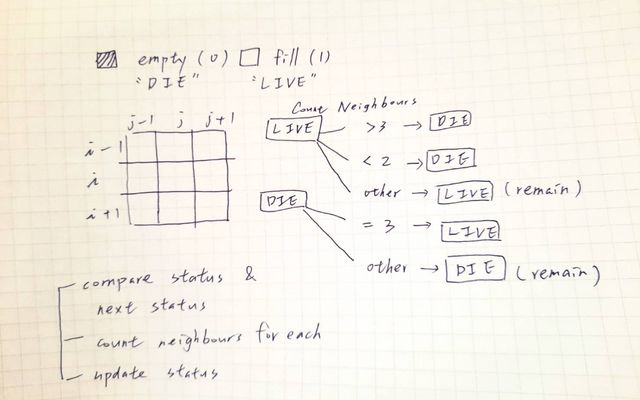 empty (0) fill (1)
"DIE" "LIVE"
Count Neighbours
j-1 j j+1
i-1
i
i+1
LIVE >3 → DIE
<2 → DIE
other → LIVE (remain)
DIE = 3 → LIVE
other → DIE (remain)
compare status &
next status
count neighbours for each
update status